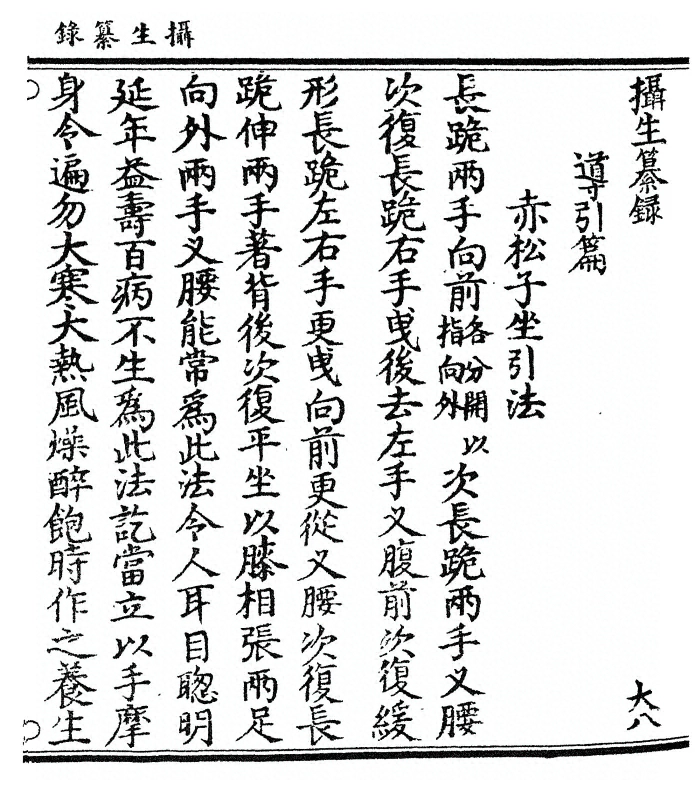 攝生纂錄
攝生纂錄
大八
導引篇
赤松子坐引法
長跪兩手向前各分開指向外以次長跪兩手叉腰
次復長跪右手曵後去左手叉腹前次復緩
形長跪左右手更曵向前更從叉腰次復長
跪伸兩手著背後次復平坐以膝相張兩足
向外兩手叉腰能常爲此法令人耳目聰明
延年益壽百病不生爲此法訖當立以手摩
身令遍勿大寒大熱風燥醉飽時作之養生